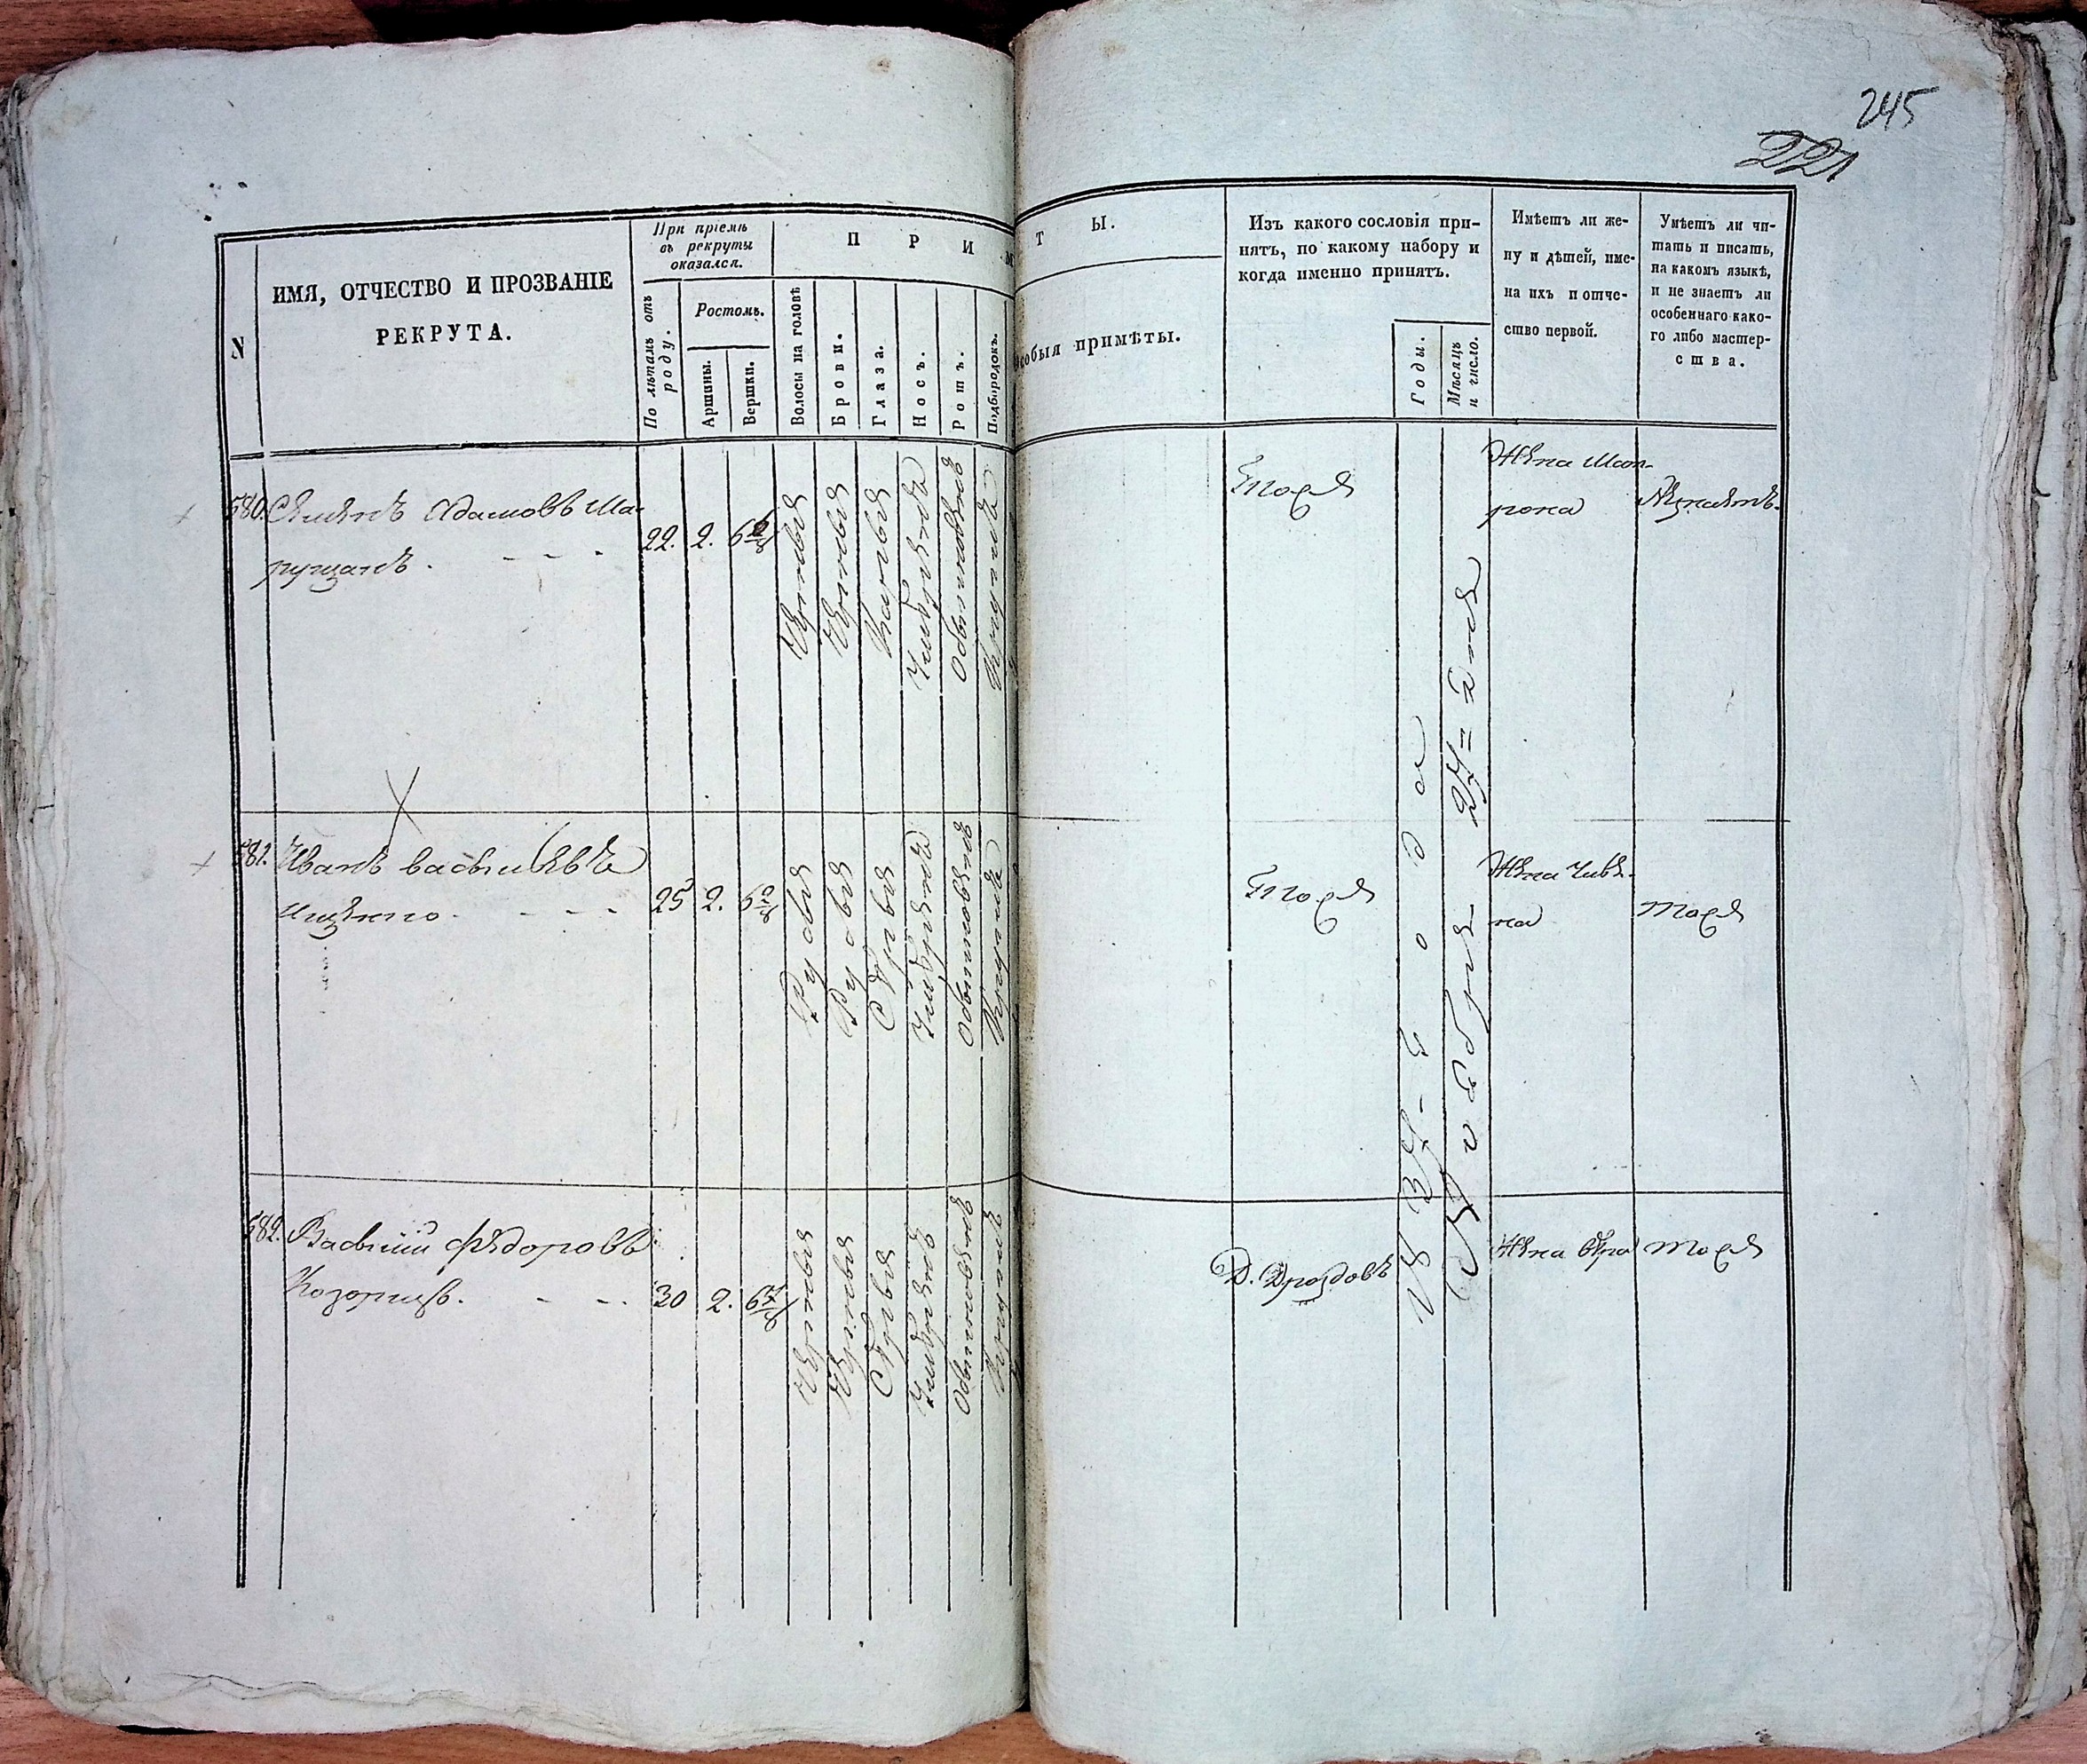 245
221
N
ИМЯ, ОТЧЕСТВО И ПРОЗВАНІЕ
РЕКРУТА.
При пріемѣ
въ рекруты
оказался.
По лѣтамъ отъ
роду.
Ростомъ.
Аршины.
Вершки.
П Р И М
Волосы на головѣ
Брови.
Глаза.
Носъ.
Ротъ.
Подбородокъ.
Т Ы.
особыя примѣты.
Изъ какого сословія при-
нятъ, по какому набору и
когда именно принятъ.
Годы.
Мѣсяцъ
и число.
Имѣетъ ли же-
ну и дѣтей, име-
на ихъ и отче-
ство первой.
Умѣетъ ли чи-
тать и писать,
на какомъ языкѣ,
и не знаетъ ли
особеннаго како-
го либо мастер-
ства.
580. Семенъ Адамовъ Ма-
рущакъ.
22. 2. 6 2/8
Черные
Черные
Каріе
Умѣренъ
Обыкновенъ
Круглъ
Тоже
Жена Мат-
рона
Незнаетъ.
581. Иванъ Васильевъ
Ищенко.
25 2. 6 2/8
Русые
Русые
Сѣрые
Умѣренъ
Обыкновенъ
Круглъ
Тоже
Жена
на
тоже
582. Василій Федоровъ
30 2. 6
Черные
Черные
Сѣрые
Умѣренъ
Обыкновенъ
Круглъ
Д. Дроздовъ
года
Ноября
Жена
тоже